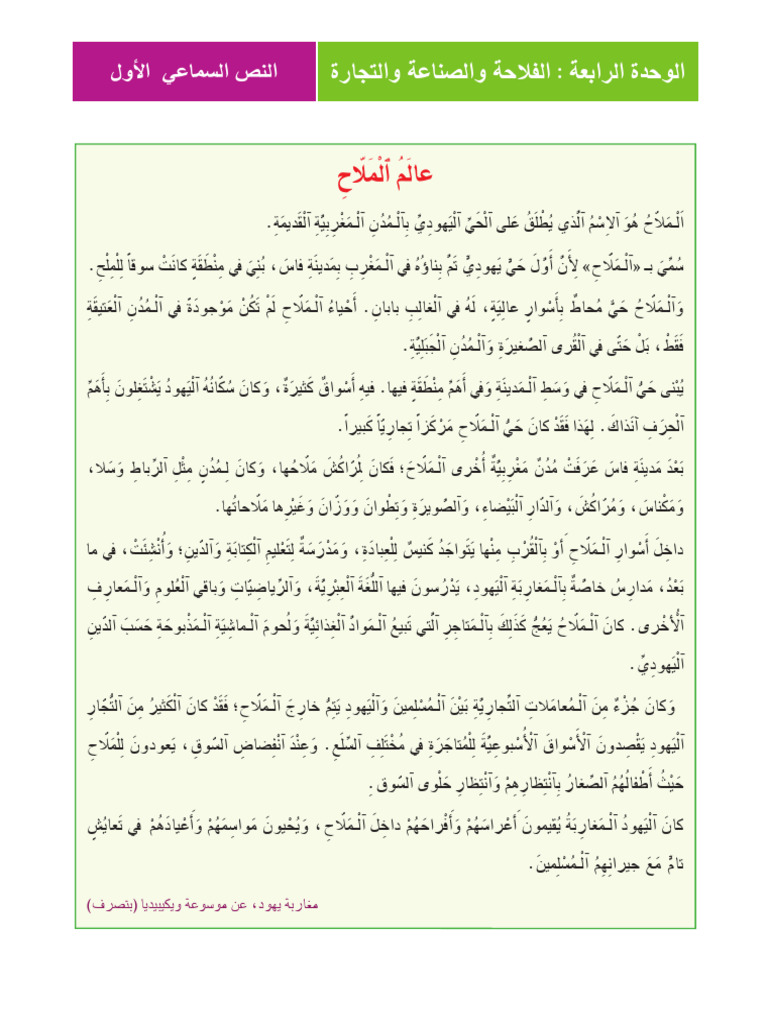 الوحدة الرابعة : الفلاحة والصناعة والتجارة
النص السماعي الأول
عالَمُ ٱلْمَلَّاحِ
اَلْـمَلاّحُ هُوَ ٱلِاسْمُ ٱلَّذي يُطْلَقُ عَلى ٱلْحَيِّ ٱلْيَهودِيِّ بِٱلْـمُدُنِ ٱلْـمَغْرِبِيَّةِ ٱلْقَديمَةِ.
سُمِّيَ بـ «ٱلْـمَلّاحِ» لِأَنَّ أَوَّلَ حَيٍّ يَهودِيٍّ تَمَّ بِناؤُهُ في ٱلْـمَغْرِبِ بِمَدينَةِ فاسَ، بُنِيَ في مِنْطَقَةٍ كانَتْ سوقاً لِلْمِلْحِ.
وَٱلْـمَلّاحُ حَيٌّ مُحاطٌ بِأَسْوارٍ عالِيَةٍ، لَهُ في ٱلْغالِبِ بابانِ. أَحْياءُ ٱلْـمَلّاحِ لَمْ تَكُنْ مَوْجودَةً في ٱلْـمُدُنِ ٱلْعَتيقَةِ
فَقَطْ، بَلْ حَتّى في ٱلْقُرى ٱلصَّغيرَةِ وَٱلْـمُدُنِ ٱلْجَبَلِيَّةِ.
يُبْنى حَيُّ ٱلْـمَلّاحِ في وَسَطِ ٱلْـمَدينَةِ وَفي أَهَمِّ مِنْطَقَةٍ فيها. فيهِ أَسْواقٌ كَثيرَةٌ، وَكانَ سُكّانُهُ ٱلْيَهودُ يَشْتَغِلونَ بِأَهَمِّ
ٱلْحِرَفِ آنَذاكَ. لِهَذا فَقَدْ كانَ حَيُّ ٱلْـمَلّاحِ مَرْكَزاً تِجارِيّاً كَبيراً.
بَعْدَ مَدينَةِ فاسَ عَرَفَتْ مُدُنٌ مَغْرِبِيَّةٌ أُخْرى ٱلْـمَلّاحَ؛ فَكانَ لِمُرّاكُشَ مَلّاحُها، وَكانَ لِـمُدُنٍ مِثْلِ ٱلرِّباطِ وَسَلا،
وَمَكْناسَ، وَمُرّاكُشَ، وَٱلدّارِ ٱلْبَيْضاءِ، وَٱلصَّويرَةِ وَتِطْوانَ وَوَزّانَ وَغَيْرِها مَلّاحاتُها.
داخِلَ أَسْوارِ ٱلْـمَلّاحِ أَوْ بِٱلْقُرْبِ مِنْها يَتَواجَدُ كَنيسٌ لِلْعِبادَةِ، وَمَدْرَسَةٌ لِتَعْليمِ ٱلْكِتابَةِ وَٱلدّينِ؛ وَأُنْشِئَتْ، في ما
بَعْدُ، مَدارِسُ خاصَّةٌ بِٱلْـمَغارِبَةِ ٱلْيَهودِ، يَدْرُسونَ فيها ٱللُّغَةَ ٱلْعِبْرِيَّةَ، وَٱلرِّياضِيّاتِ وَباقي ٱلْعُلومِ وَٱلْـمَعارِفِ
ٱلْأُخْرى. كانَ ٱلْـمَلّاحُ يَعُجُّ كَذَلِكَ بِٱلْـمَتاجِرِ ٱلَّتي تَبيعُ ٱلْـمَوادَّ ٱلْغِذائِيَّةَ وَلُحومَ ٱلْـماشِيَةِ ٱلْـمَذْبوحَةِ حَسَبَ ٱلدّينِ
ٱلْيَهودِيِّ.
وَكانَ جُزْءٌ مِنَ ٱلْـمُعامَلاتِ ٱلتِّجارِيَّةِ بَيْنَ ٱلْـمُسْلِمينَ وَٱلْيَهودِ يَتِمُّ خارِجَ ٱلْـمَلّاحِ؛ فَقَدْ كانَ ٱلْكَثيرُ مِنَ ٱلتُّجّارِ
ٱلْيَهودِ يَقْصِدونَ ٱلْأَسْواقَ ٱلْأُسْبوعِيَّةَ لِلْمُتاجَرَةِ في مُخْتَلِفِ ٱلسِّلَعِ. وَعِنْدَ ٱنْفِضاضِ ٱلسّوقِ، يَعودونَ لِلْمَلّاحِ
حَيْثُ أَطْفالُهُمُ ٱلصِّغارُ بِٱنْتِظارِهِمْ وَٱنْتِظارِ حَلْوى ٱلسّوقِ.
كانَ ٱلْيَهودُ ٱلْـمَغارِبَةُ يُقيمونَ أَعْراسَهُمْ وَأَفْراحَهُمْ داخِلَ ٱلْـمَلّاحِ، وَيُحْيونَ مَواسِمَهُمْ وَأَعْيادَهُمْ في تَعايُشٍ
تامٍّ مَعَ جيرانِهِمُ ٱلْـمُسْلِمينَ.
مغاربة يهود، عن موسوعة ويكيبيديا (بتصرف)